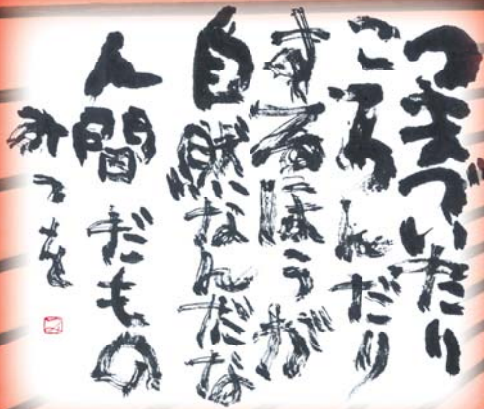 つまづいたり
ころんだり
するほうが
自然なんだな
人間だもの
みつを